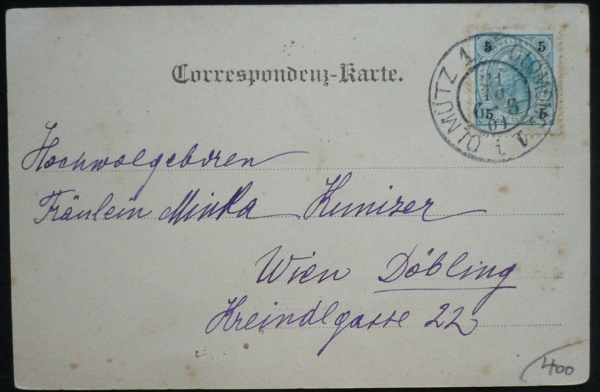 Correspondenz-Karte.
5 5
5 5
OLMÜTZ 1
Hochwolgeboren
Fräulein Minka Kuniser
Wien Döbling
Kreindlgasse 22
400